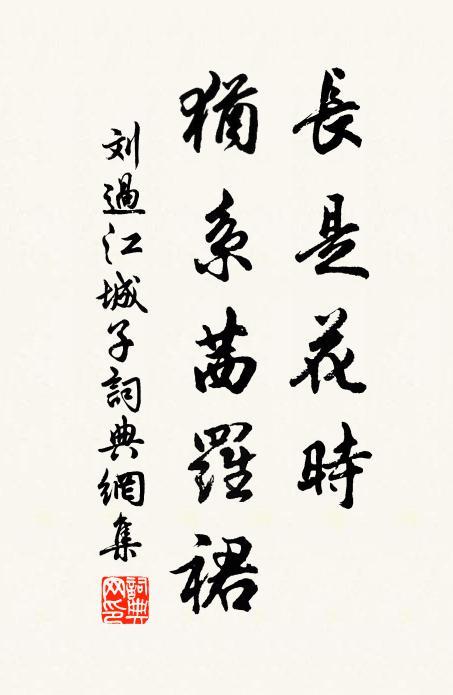 長是花時
猶系茜羅裙
刘過江城子詞典網集
詞典網印